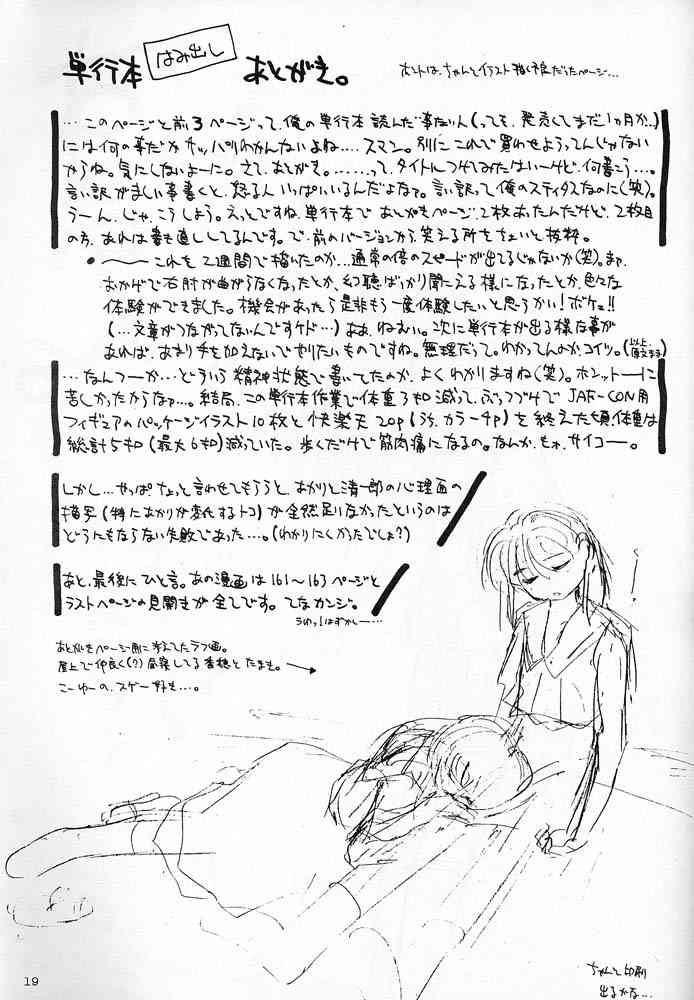 単行本 はみ出し あとがき。
ホントは、ちゃんとイラスト描く予定だったページ…
…このページと前3ページって、俺の単行本読んだ事ない人(っても、発売してまだ1ヵ月か…)
には何の事だかサッパリわかんないよね…。スマン。別にこれで買わせようってんじゃない
からね。気にしないよーに。さて、あとがき。……って、タイトルつけてみたはいーけど、何書こう…。
言い訳がましい事書くと、怒る人いっぱいいるんだよなァ。言い訳って俺のステイタスなのに(笑)。
うーん、じゃ、こうしよう。えっとですね、単行本であとがきページ、2枚あったんだけど、2枚目
の方、あれは書き直ししてるんです。で、前のバージョンから、笑える所をちょいと抜粋。
●〜これを2週間で描いたのか…通常の倍のスピードが出てるじゃないか(笑)。まァ、
おかげで右肘が曲がらなくなったとか、幻聴ばっかり聞こえる様になったとか、色々な
体験ができました。機会があったら是非もう一度体験したいと思うかい!ボケェ!!
(…文章がつながってないんですケド…)ああ、ねむい。次に単行本が出る様な事が
あれば、あまり手を加えないでやりたいものですね。無理だって。わかってんのか、コイツ。(以上、原文まま)
…なんつーか…どういう精神状態で書いてたのか、よくわかりますね(笑)。ホンットーに
苦しかったからなァ…。結局、この単行本作業で体重3キロ減って、ぶっつづけでJAF-CON用
フィギュアのパッケージイラスト10枚と快楽天20p(うち、カラー4p)を終えた頃、体重は
総計5キロ(最大6キロ)減っていた。歩くだけで筋肉痛になるの。なんか、もォ、サイコー。
しかし…やっぱ、ちょっと言わせてもらうと、あかりと清一郎の心理面の
描写(特にあかりが変化するトコ)が全然足りなかったというのは
どうにもならない失敗であった…。(わかりにくかったでしょ?)
あと、最後にひと言。あの漫画は161〜163ページと
ラストページの見開きが全てです。てなカンジ。
うわっ!はずかしー…
あとがきページ用に考えてたラフ画。
屋上で仲良く(?)昼寝してる香穂とたまき。
こーゆーの、スゲー好き…。
ちゃんと印刷
出るかな…
19